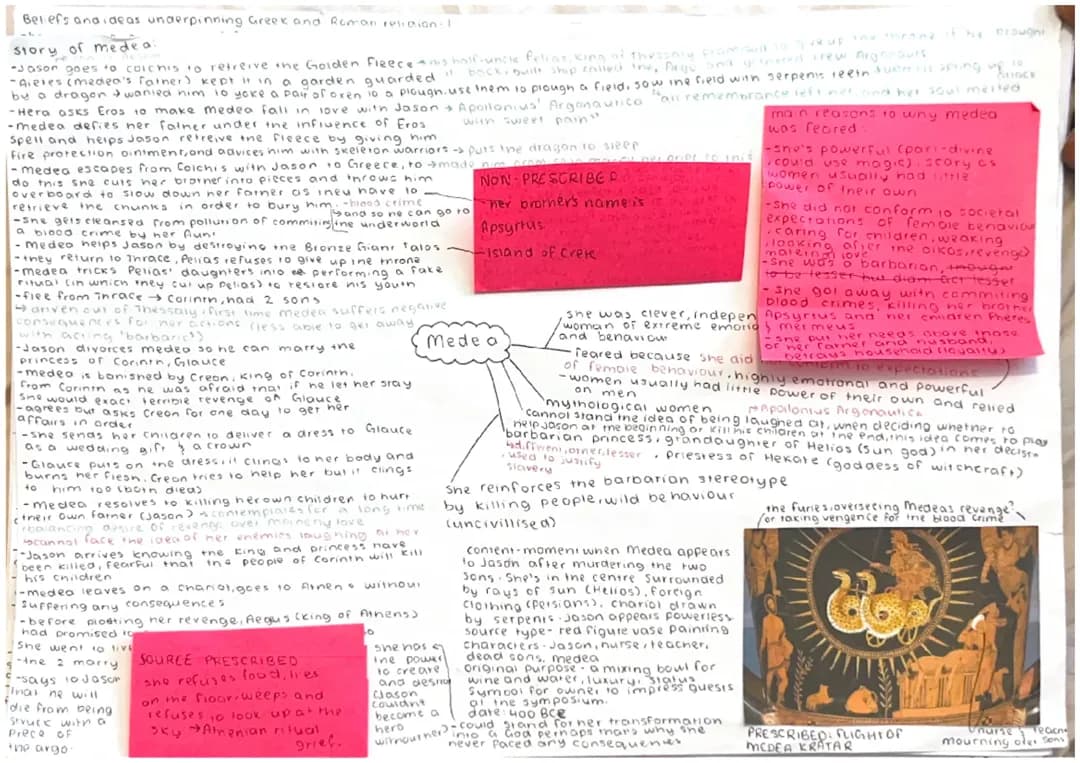 Beliefs and ideas underpinning Greek and Roman religion:
Story of Medea:
-Jason goes to colchis to retreive the Golden Fleece → his half-uncle Pelias, king of Thessaly
it back, built ship called the, Argo and crew Argonauts
-Aietes (medea's father) kept it in a garden guarded
by a dragon → wanted him to yoke a pair of oxen to a plough, use them to plough a field, sow the field with serpents teeth
-Hera asks Eros to make Medea fall in love with Jason → Apollonius' Argonautica
"all remembrance left her, and her soul melted
with sweet pain"
-medea defies her father under the influence of Eros
spell and helps Jason retreive the fleece by giving him
fire protection ointment, and advices him with skeleton warriors → puts the dragon to sleep
-Medea escapes from Colchis with Jason to Greece, to → made him
do this she cuts her brother into pieces and throws him
overboard to slow down her father as they have to
retrieve the chunks in order to bury him. -blood crime
↳ and so he can go to
the underworld
-She gets cleansed from pollution of commiting
a blood crime by her Aunt
-Medea helps Jason by destroying the Bronze Giant Talos
-they return to Thrace, Pelias refuses to give up the throne
-medea tricks Pelias' daughters into performing a fake
ritual (in which they cut up Pelias) to restore his youth
-flee from Thrace → Corinth, had 2 sons
↳ driven out of Thessaly: first time medea suffers negative
consequences for her actions (less able to get away
with acting 'barbaric')
-Jason divorces medea so he can marry the
princess of Corinth, Glauce
-Medea is banished by Creon, king of Corinth.
from Corinth as he was afraid that if he let her stay
She would exact terrible revenge on Glauce
-agrees but asks Creon for one day to get her
affairs in order
-she sends her children to deliver a dress to Glauce
as a wedding gift & a crown
-Glauce puts on the dress, it clings to her body and
burns her flesh, Creon tries to help her but it clings
to him too (both died)
-medea resolves to killing her own children to hurt
their own father (Jason) → contemplates for a long time
balancing desire of revenge over motherly love
↳ cannot face the idea of her enemies laughing at her
-Jason arrives knowing the king and princess have
been killed, fearful that the people of Corinth will kill
his children
-medea leaves on a chariot, goes to Athens without
suffering any consequences
-before plotting her revenge, Aegus (king of Athens)
had promised
She went to
-the 2 marry
-says to Jason
that he will
die from being
struck with a
piece of
the argo.
SOURCE PRESCRIBED
she refuses food, lies
on the floor, weeps and
refuses to look up at the
sky → Athenian ritual
grief.
she has
the power
to create
and destroy
(Jason
couldnt
become a
hero
without her)
NON-PRESCRIBED
her brother's name is
Apsyrtus
-Island of Crete
main reasons to why medea
was feared:
-she's powerful (part-divine
, could use magic), scary as
women usually had little
power of their own
-She did not conform to societal
expectations of female behaviour
, caring for children, weaking
, looking after the oikos, revenge)
-She was a barbarian, thought
to be lesser but didnt act lesser
-She got away with commiting
blood crimes, killing her brother
Apsyrtus and her children Pheres
& mermeus
-she put her needs above those
of her father and husband,
betrays household (loyalty)
Medea
she was clever, indepen
woman of extreme
and behaviour
feared because she did
of female behaviour, highly emotional and powerful
-women usually had little power of their own and relied
on men
mythological women
→ Apollonius Argonautica
cannot stand the idea of being laughed at, when deciding whether to
help Jason at the beginning or kill his children at the end, this idea comes to play
in her decision
barbarian princess, grandaughter of Helios (Sun god)
↳ different, other, lesser
, used to justify
slavery
, Priestess of Hekate (goddess of witchcraft)
She reinforces the barbarian stereotype
by killing people, wild behaviour
(uncivilised)
content-moment when Medea appears
to Jason after murdering the two
sons. She's in the centre surrounded
by rays of sun (Helios), foreign
clothing (Persians), chariot drawn
by serpents. Jason appears powerless
source type- red figure vase painting
characters- Jason, nurse/teacher,
dead sons, medea
original purpose - a mixing bowl for
wine and water, luxury, status
symbol for owner to impress guests
at the symposium.
date: 400 BCE
-could stand for her transformation
into a God perhaps thats why she
never faced any consequences
the furies, overseeing Medeas revenge?
or taking vengence for the blood crime
PRESCRIBED: FLIGHT OF
MEDEA KRATAR
nurse &
mourning sons